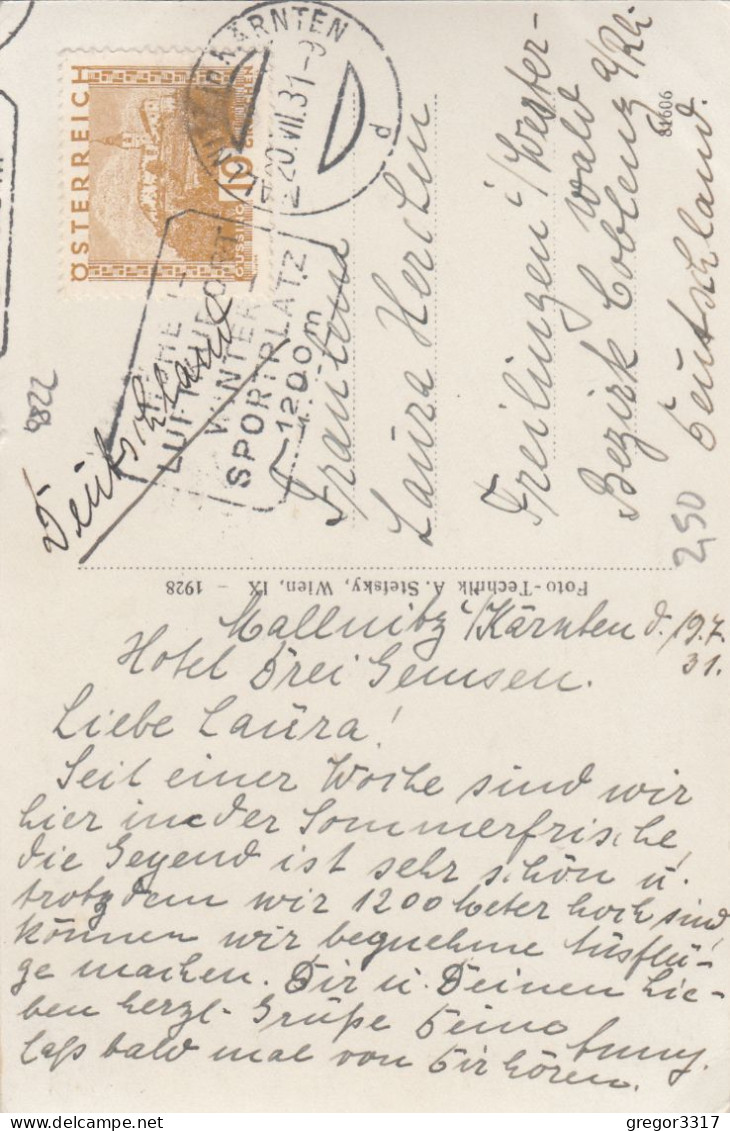 ÖSTERREICH
10
GROSCHEN
KÄRNTEN
20.VII.31-9
d
LUFTKURORT
WINTER
SPORTPLATZ
1200m
Deutschland
228a
Fräulein
Laura Herchen
Freilingen i/Wester-
wald
Bezirk Coblenz a/Rh.
Deutschland.
81606
2,50
Foto-Technik A. Stefsky, Wien, IX - 1928
Mallnitz i/Kärnten d. 19.7.
31.
Hotel Drei Gemsen.
Liebe Laura!
Seit einer Woche sind wir
hier in der Sommerfrische,
die Gegend ist sehr schön u.
trotzdem wir 1200 Meter hoch sind
können wir bequehme Ausflü-
ge machen. Dir u. Deinen Lie-
ben herzl. Grüße Deine Anny.
laß bald mal von Dir hören.
gregor3317